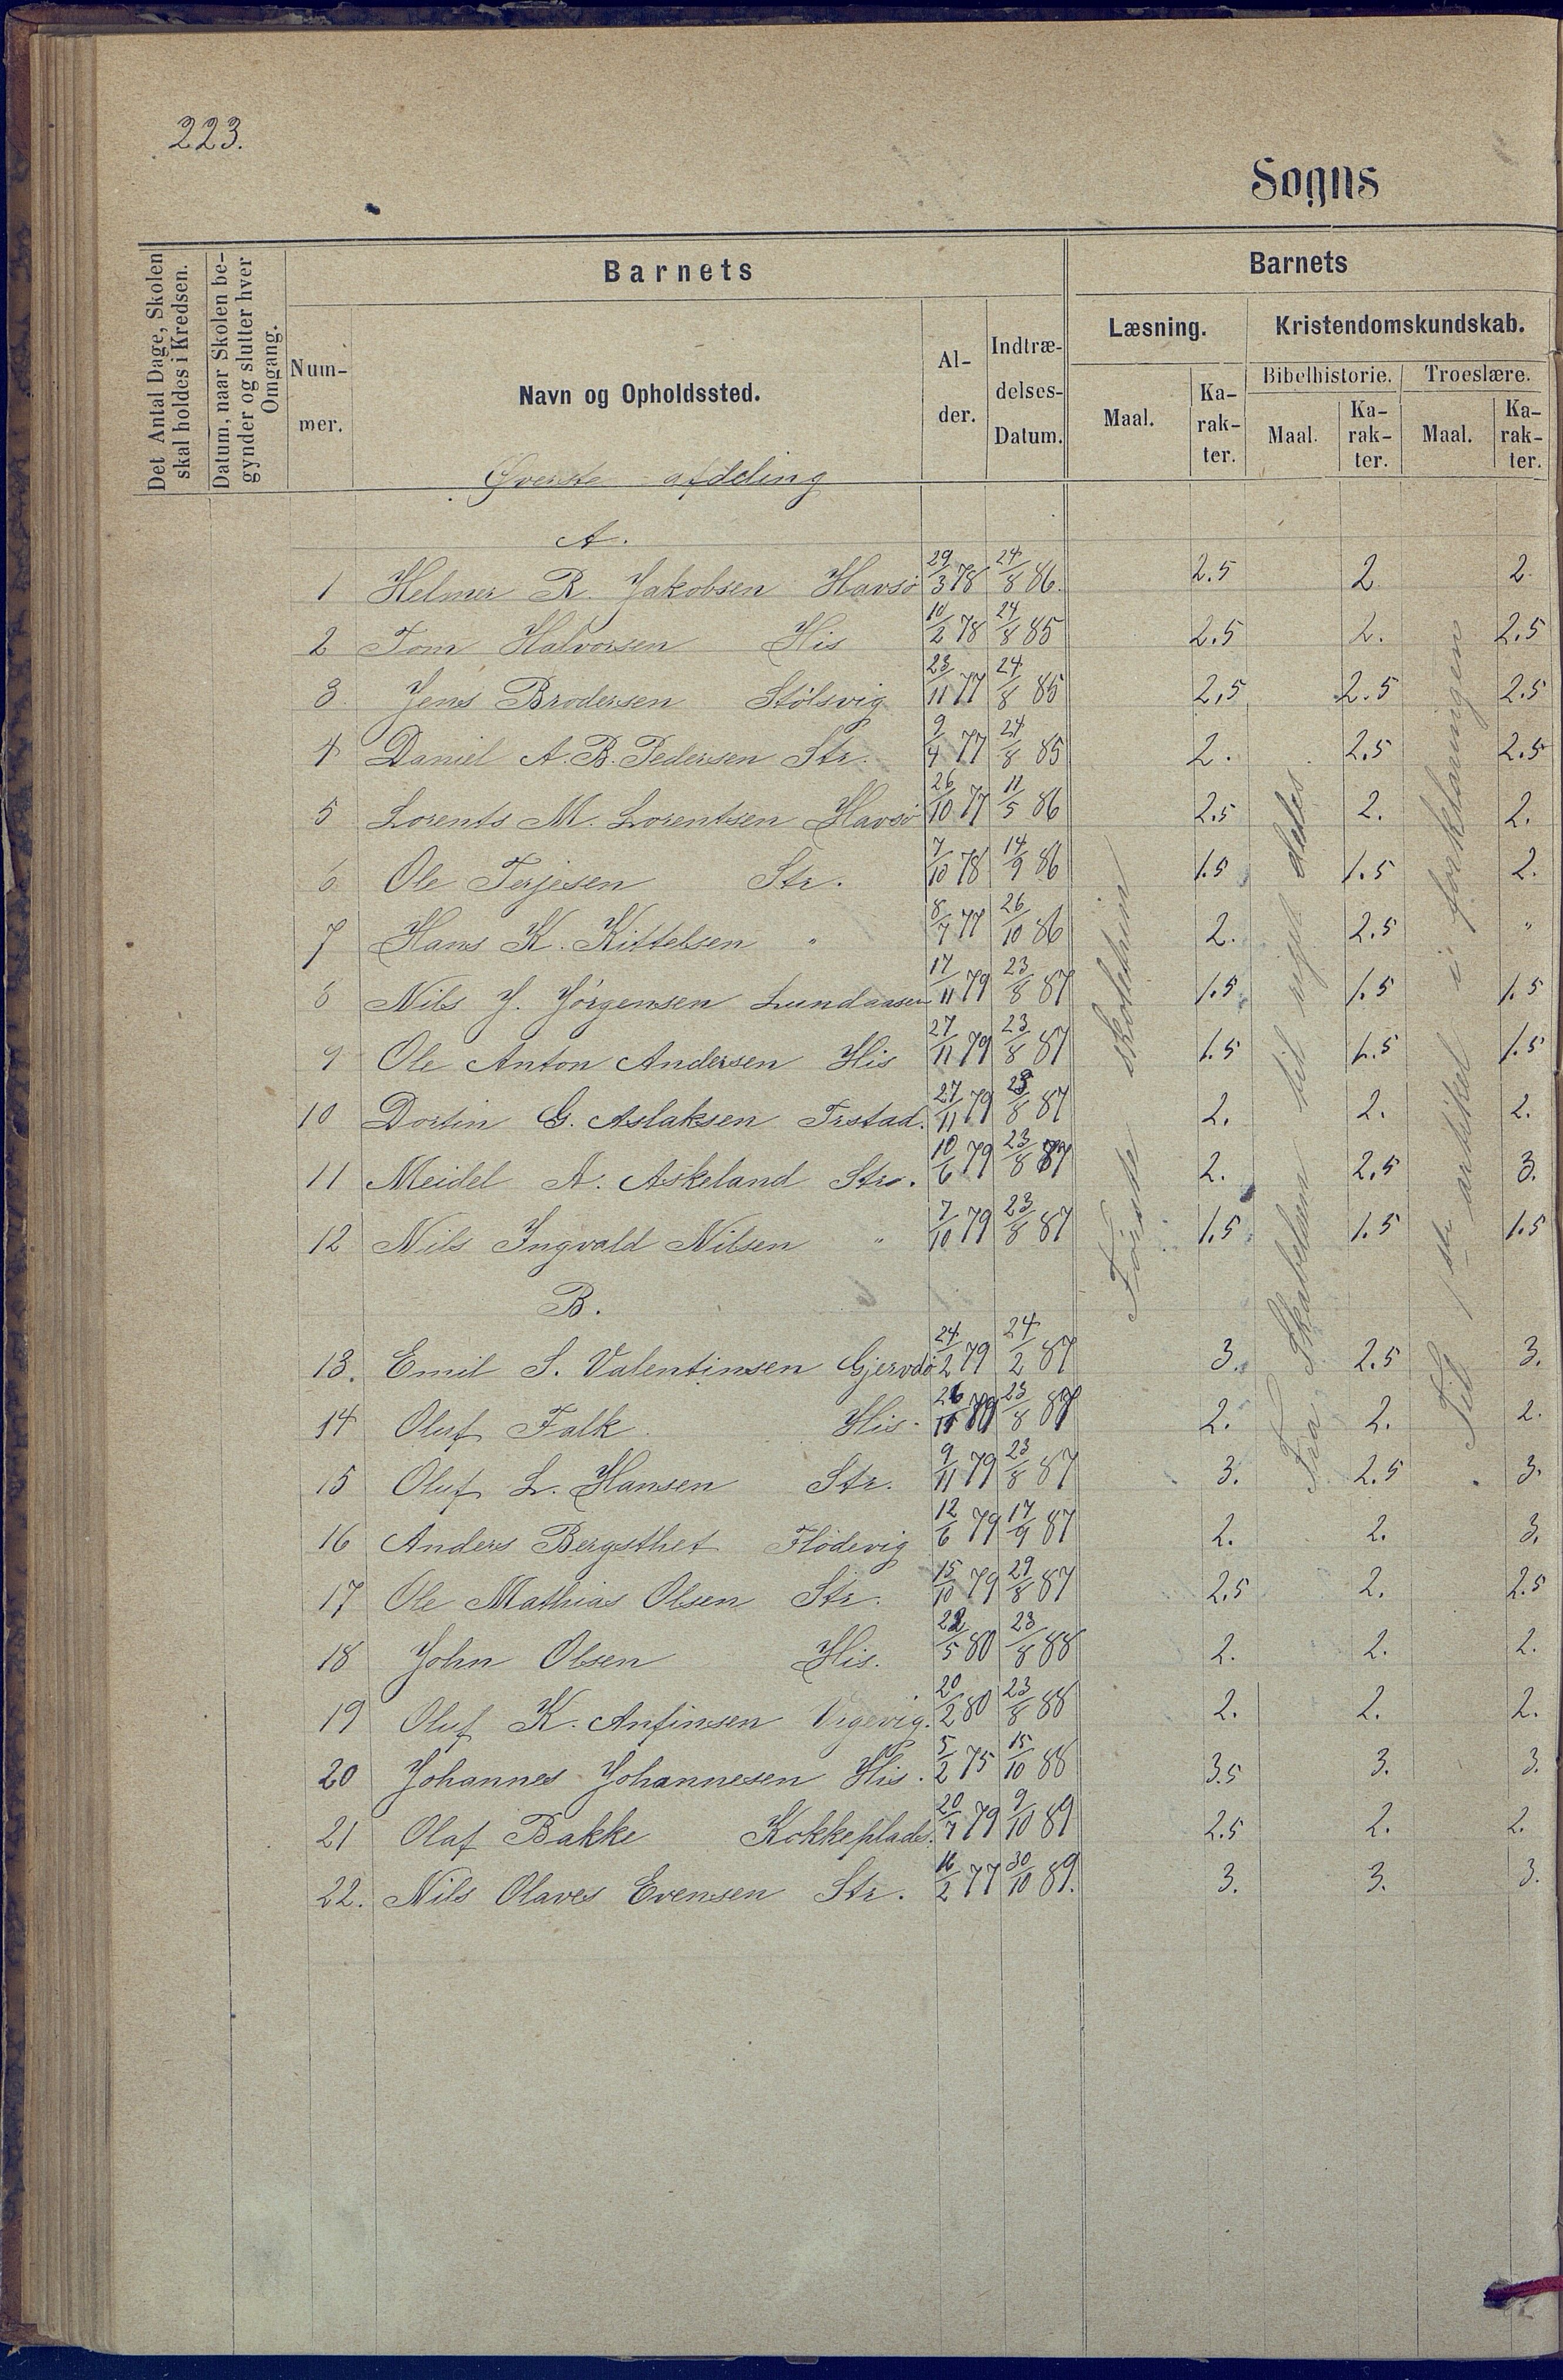 223.
Sogns
Det Antal Dage, Skolen skal holdes i Kredsen.
Datum, naar Skolen begynder og slutter hver Omgang.
Barnets
Barnets
Nummer.
Navn og Opholdssted.
Alder.
Indtrædelses-Datum.
Læsning.
Kristendomskundskab.
Bibelhistorie.
Troeslære.
Maal.
Karakter.
Maal.
Karakter.
Maal.
Karakter.
Øverste afdeling
A.
1 Helmer R. Jakobsen Havsö 29/3 78 24/8 86. 2.5 2 2.
2 Tom Halvorsen His 10/2 78 24/8 85 2.5 2. 2.5
3 Jens Brodersen Stölsvig 23/11 77 24/8 85 2.5 2.5 2.5
4 Daniel A. B. Pedersen Str. 9/4 77 24/8 85 2. 2.5 2.5
5 Lorents M. Lorentsen Havsö 26/10 77 11/5 86 2.5 2. 2.
6 Ole Terjesen Str. 7/10 78 14/9 86 1.5 1.5 2.
7 Hans K. Kittelsen " 8/7 77 26/10 86 2. 2.5 "
8 Nils J. Jörgensen Lundaasen 17/11 79 23/8 87 1.5 1.5 1.5
9 Ole Anton Andersen His 27/11 79 23/8 87 1.5 1.5 1.5
10 Dortin G. Aslaksen Trstad. 27/11 79 23/8 87 2. 2. 2.
11 Meidel A. Askeland Str. 10/6 79 23/8 87 2. 2.5 3.
12 Nils Ingvald Nilsen " 7/10 79 23/8 87 1.5 1.5 1.5
B.
13. Emil S. Valentinsen Gjervdö 24/2 79 24/2 87 3. 2.5 3.
14 Oluf Falk His. 23/8 87 2. 2. 2.
15 Oluf L. Hansen Str. 9/11 79 23/8 87 3. 2.5 3.
16 Anders Bergsthet Flödevig 12/6 79 17/9 87 2. 2. 3.
17 Ole Mathias Olsen Str. 15/10 79 29/8 87 2.5 2. 2.5
18 John Olsen His. 22/5 80 23/8 88 2. 2. 2.
19 Oluf K. Anfinsen Vigevig. 20/2 80 23/8 88 2. 2. 2.
20 Johannes Johannesen His. 5/2 75 15/10 88 3.5 3. 3.
21 Olaf Bakke Kokkeplads. 20/7 79 9/10 89 2.5 2. 2.
22. Nils Olaves Evensen Str. 16/2 77 30/10 89. 3. 3. 3.
Förste skoletrin
Fra Skabelsen til riget deles
Til 1ste artikel i forklaringen